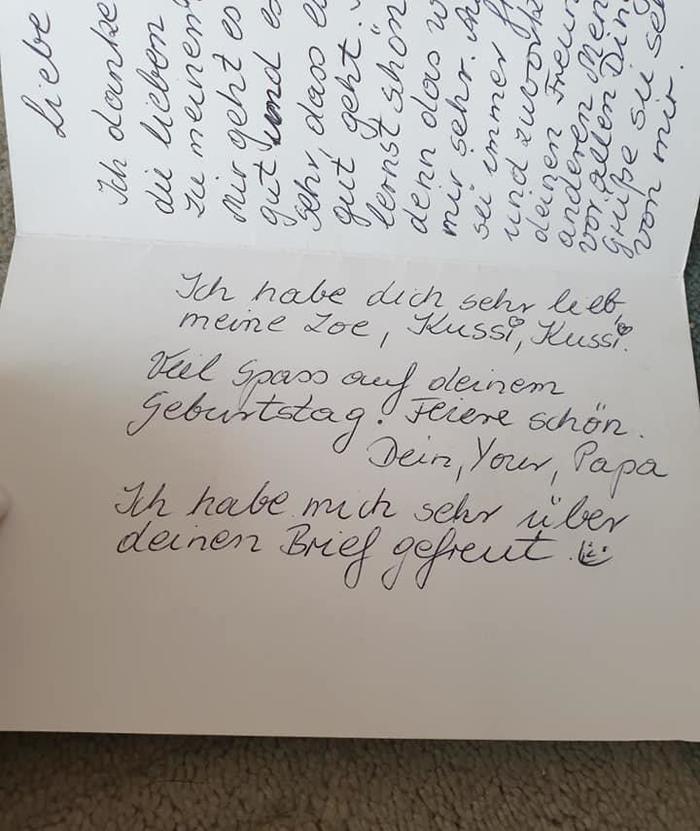 Liebe
Ich danke
die lieben
zu meinen
Mir geht es
gut und es
sehr, dass es
gut geht.
lernst schön
denn das w
mir sehr.
sei immer
und zuvork
deinen Freun
anderen Men
vor allen Din
Grüße sei seh
von mir.
Ich habe dich sehr lieb,
meine Zoe, Kussi, Kussi.
Viel Spass auf deinem
Geburtstag. Feiere schön.
Dein, Your, Papa
Ich habe mich sehr über
deinen Brief gefreut.